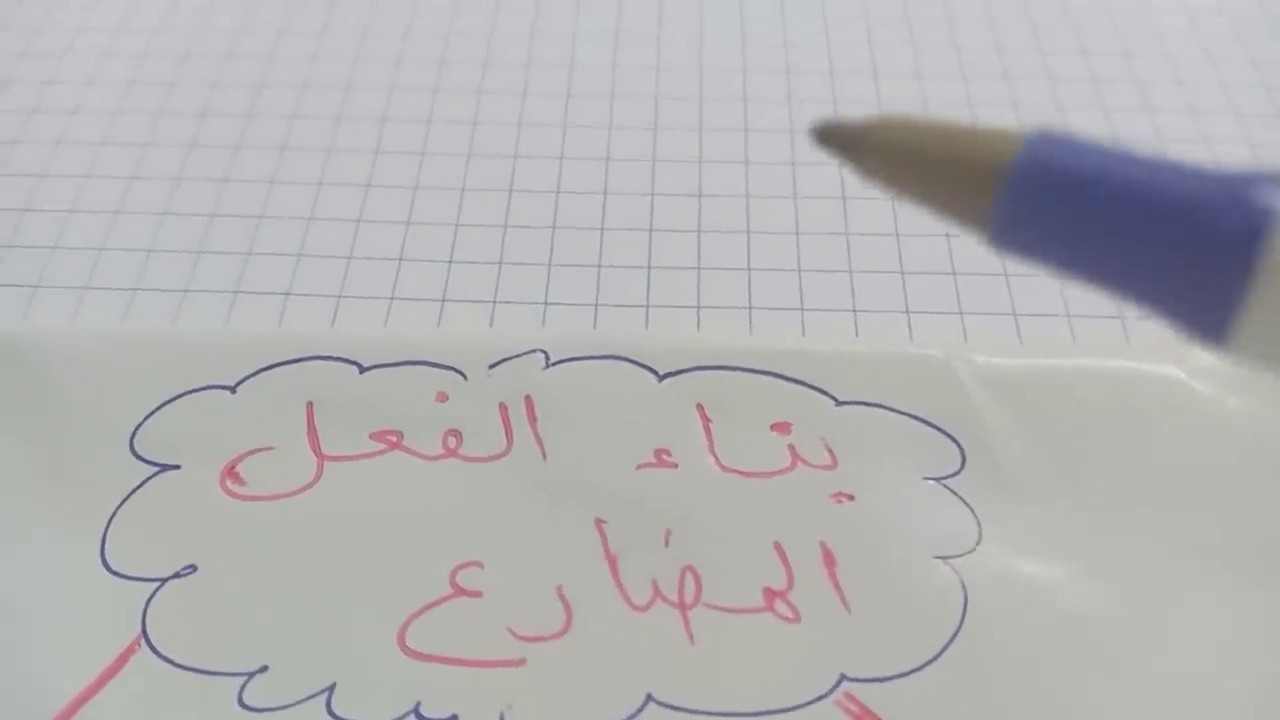 بناء الفعل
المضارع